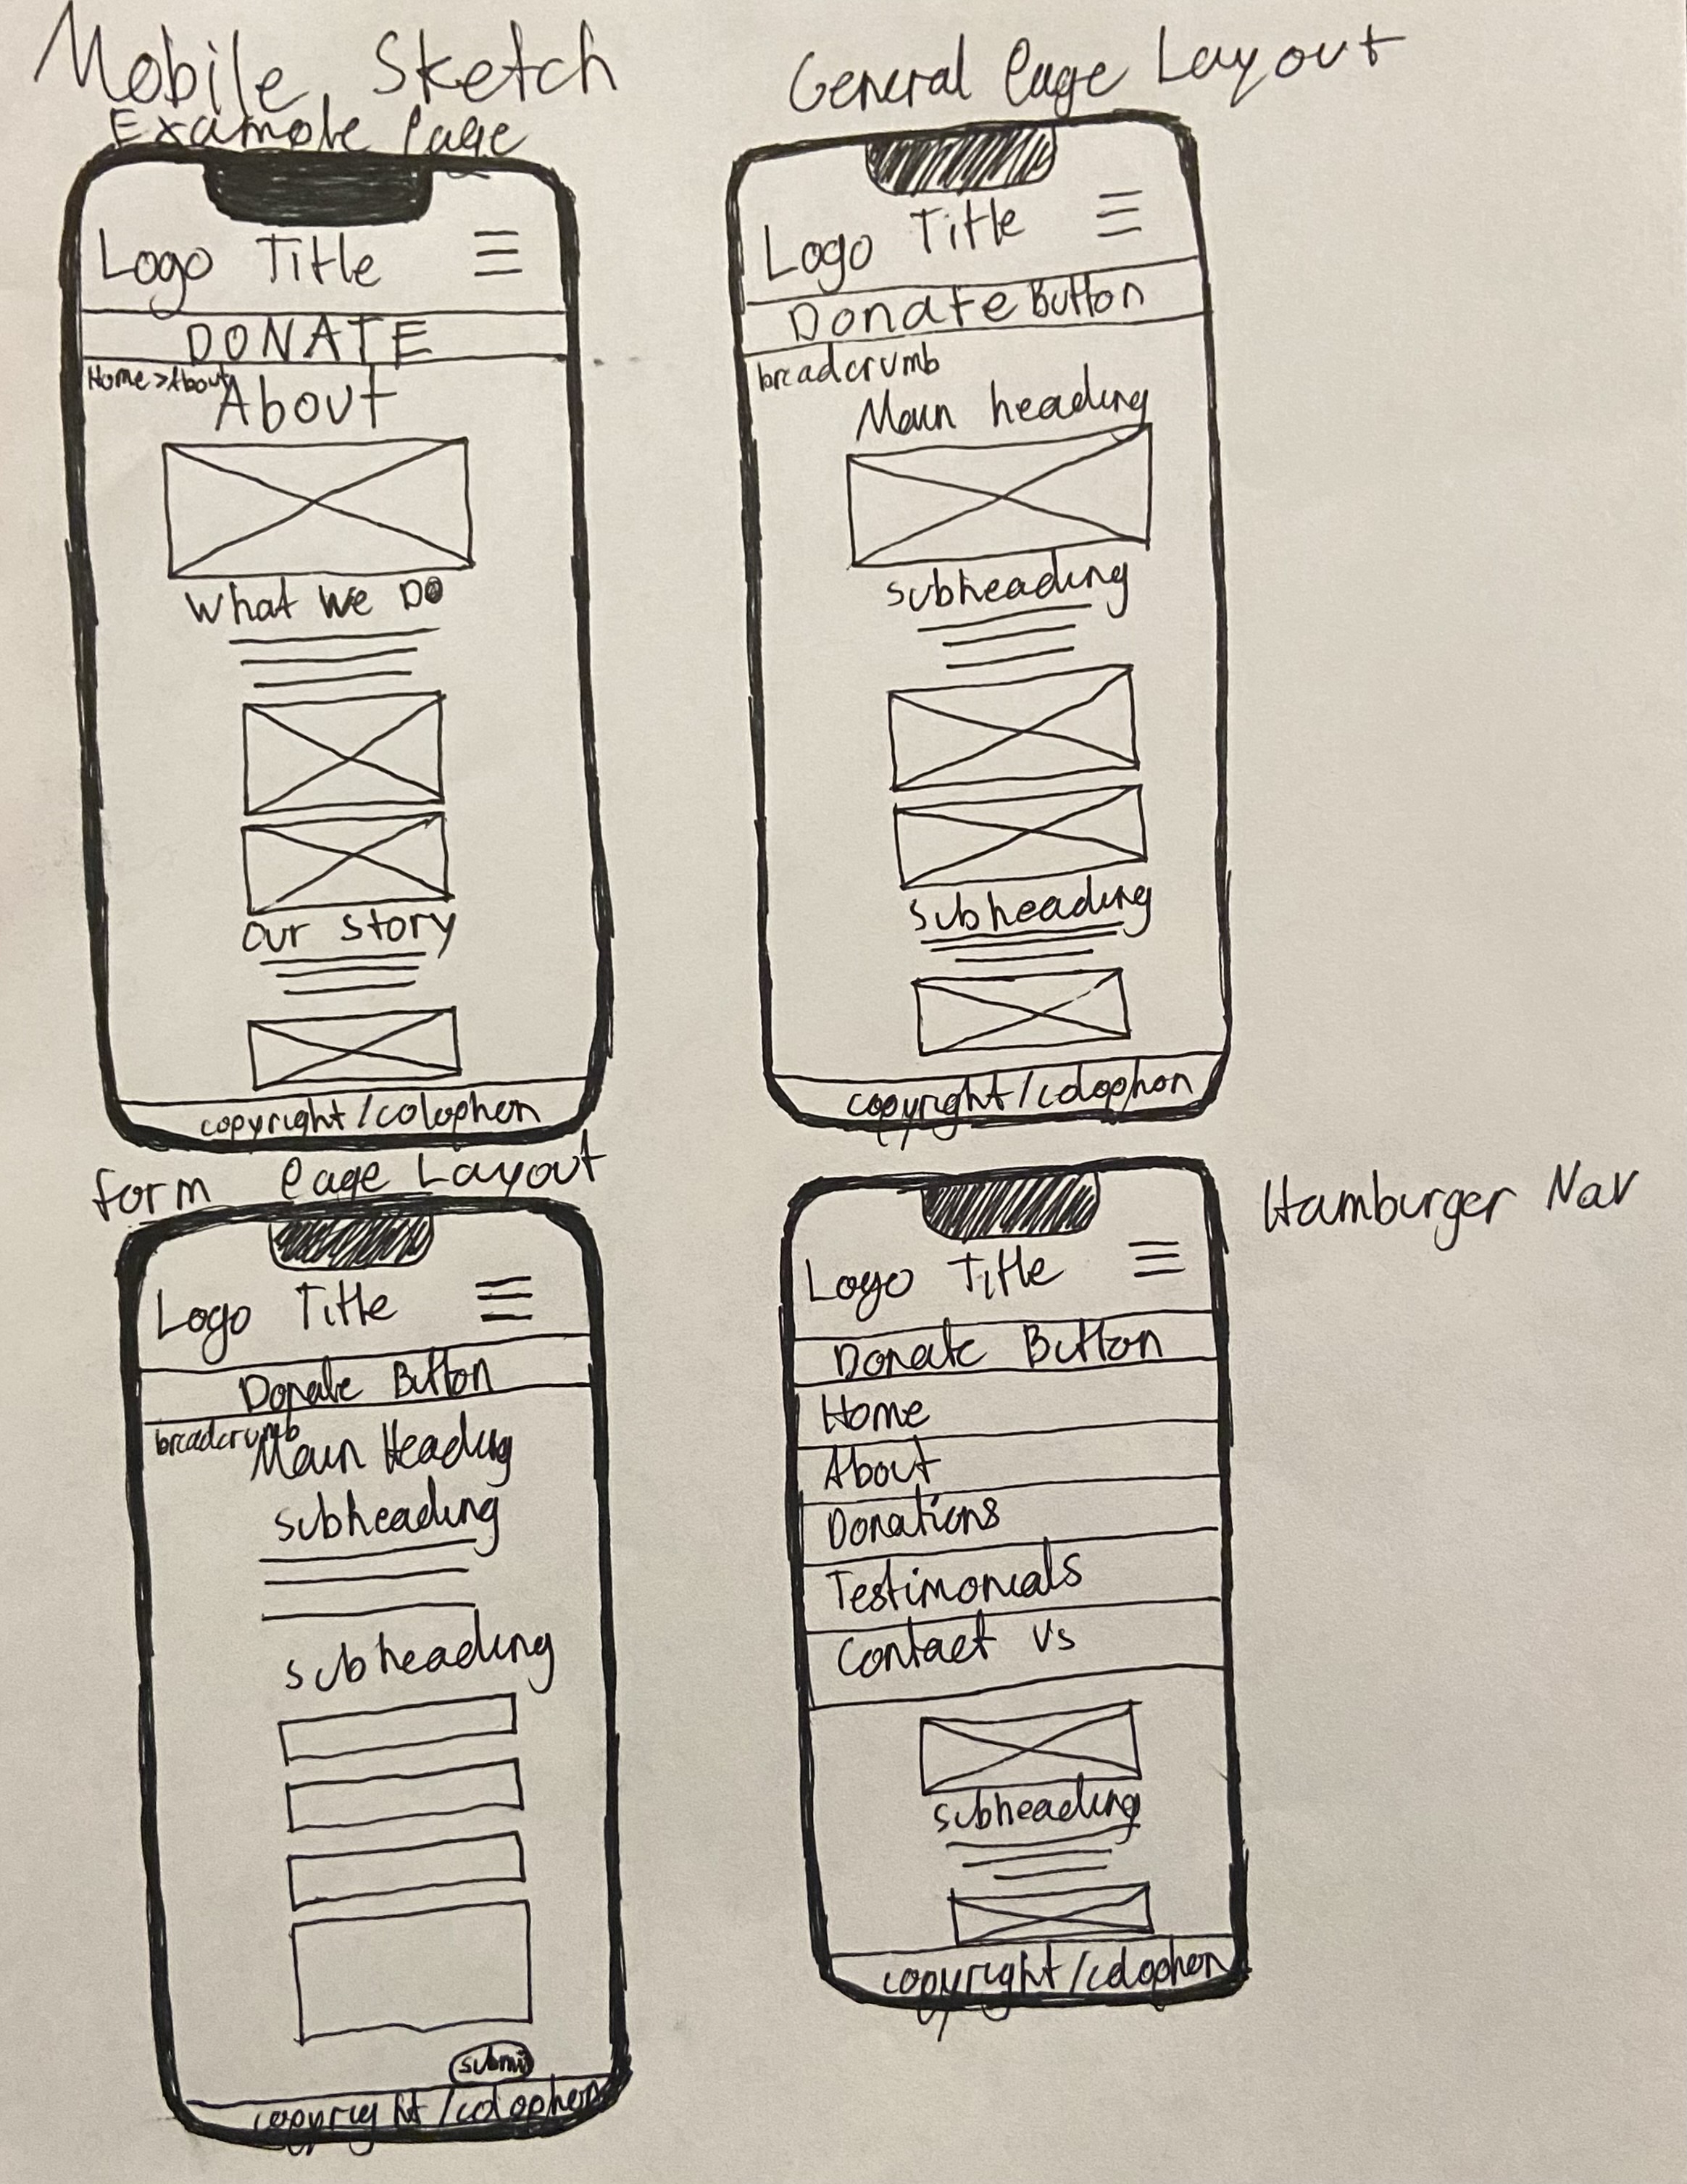 Mobile Sketch
Example Page
Logo Title
DONATE
Home > About
About
What We Do
Our story
copyright/colophon
General Page Layout
Logo Title
Donate Button
breadcrumb
Main heading
subheading
subheading
copyright/colophon
Form Page Layout
Logo Title
Donate Button
breadcrumb
Main Heading
subheading
subheading
submit
copyright/colophon
Hamburger Nav
Logo Title
Donate Button
Home
About
Donations
Testimonials
Contact Us
subheading
copyright/colophon